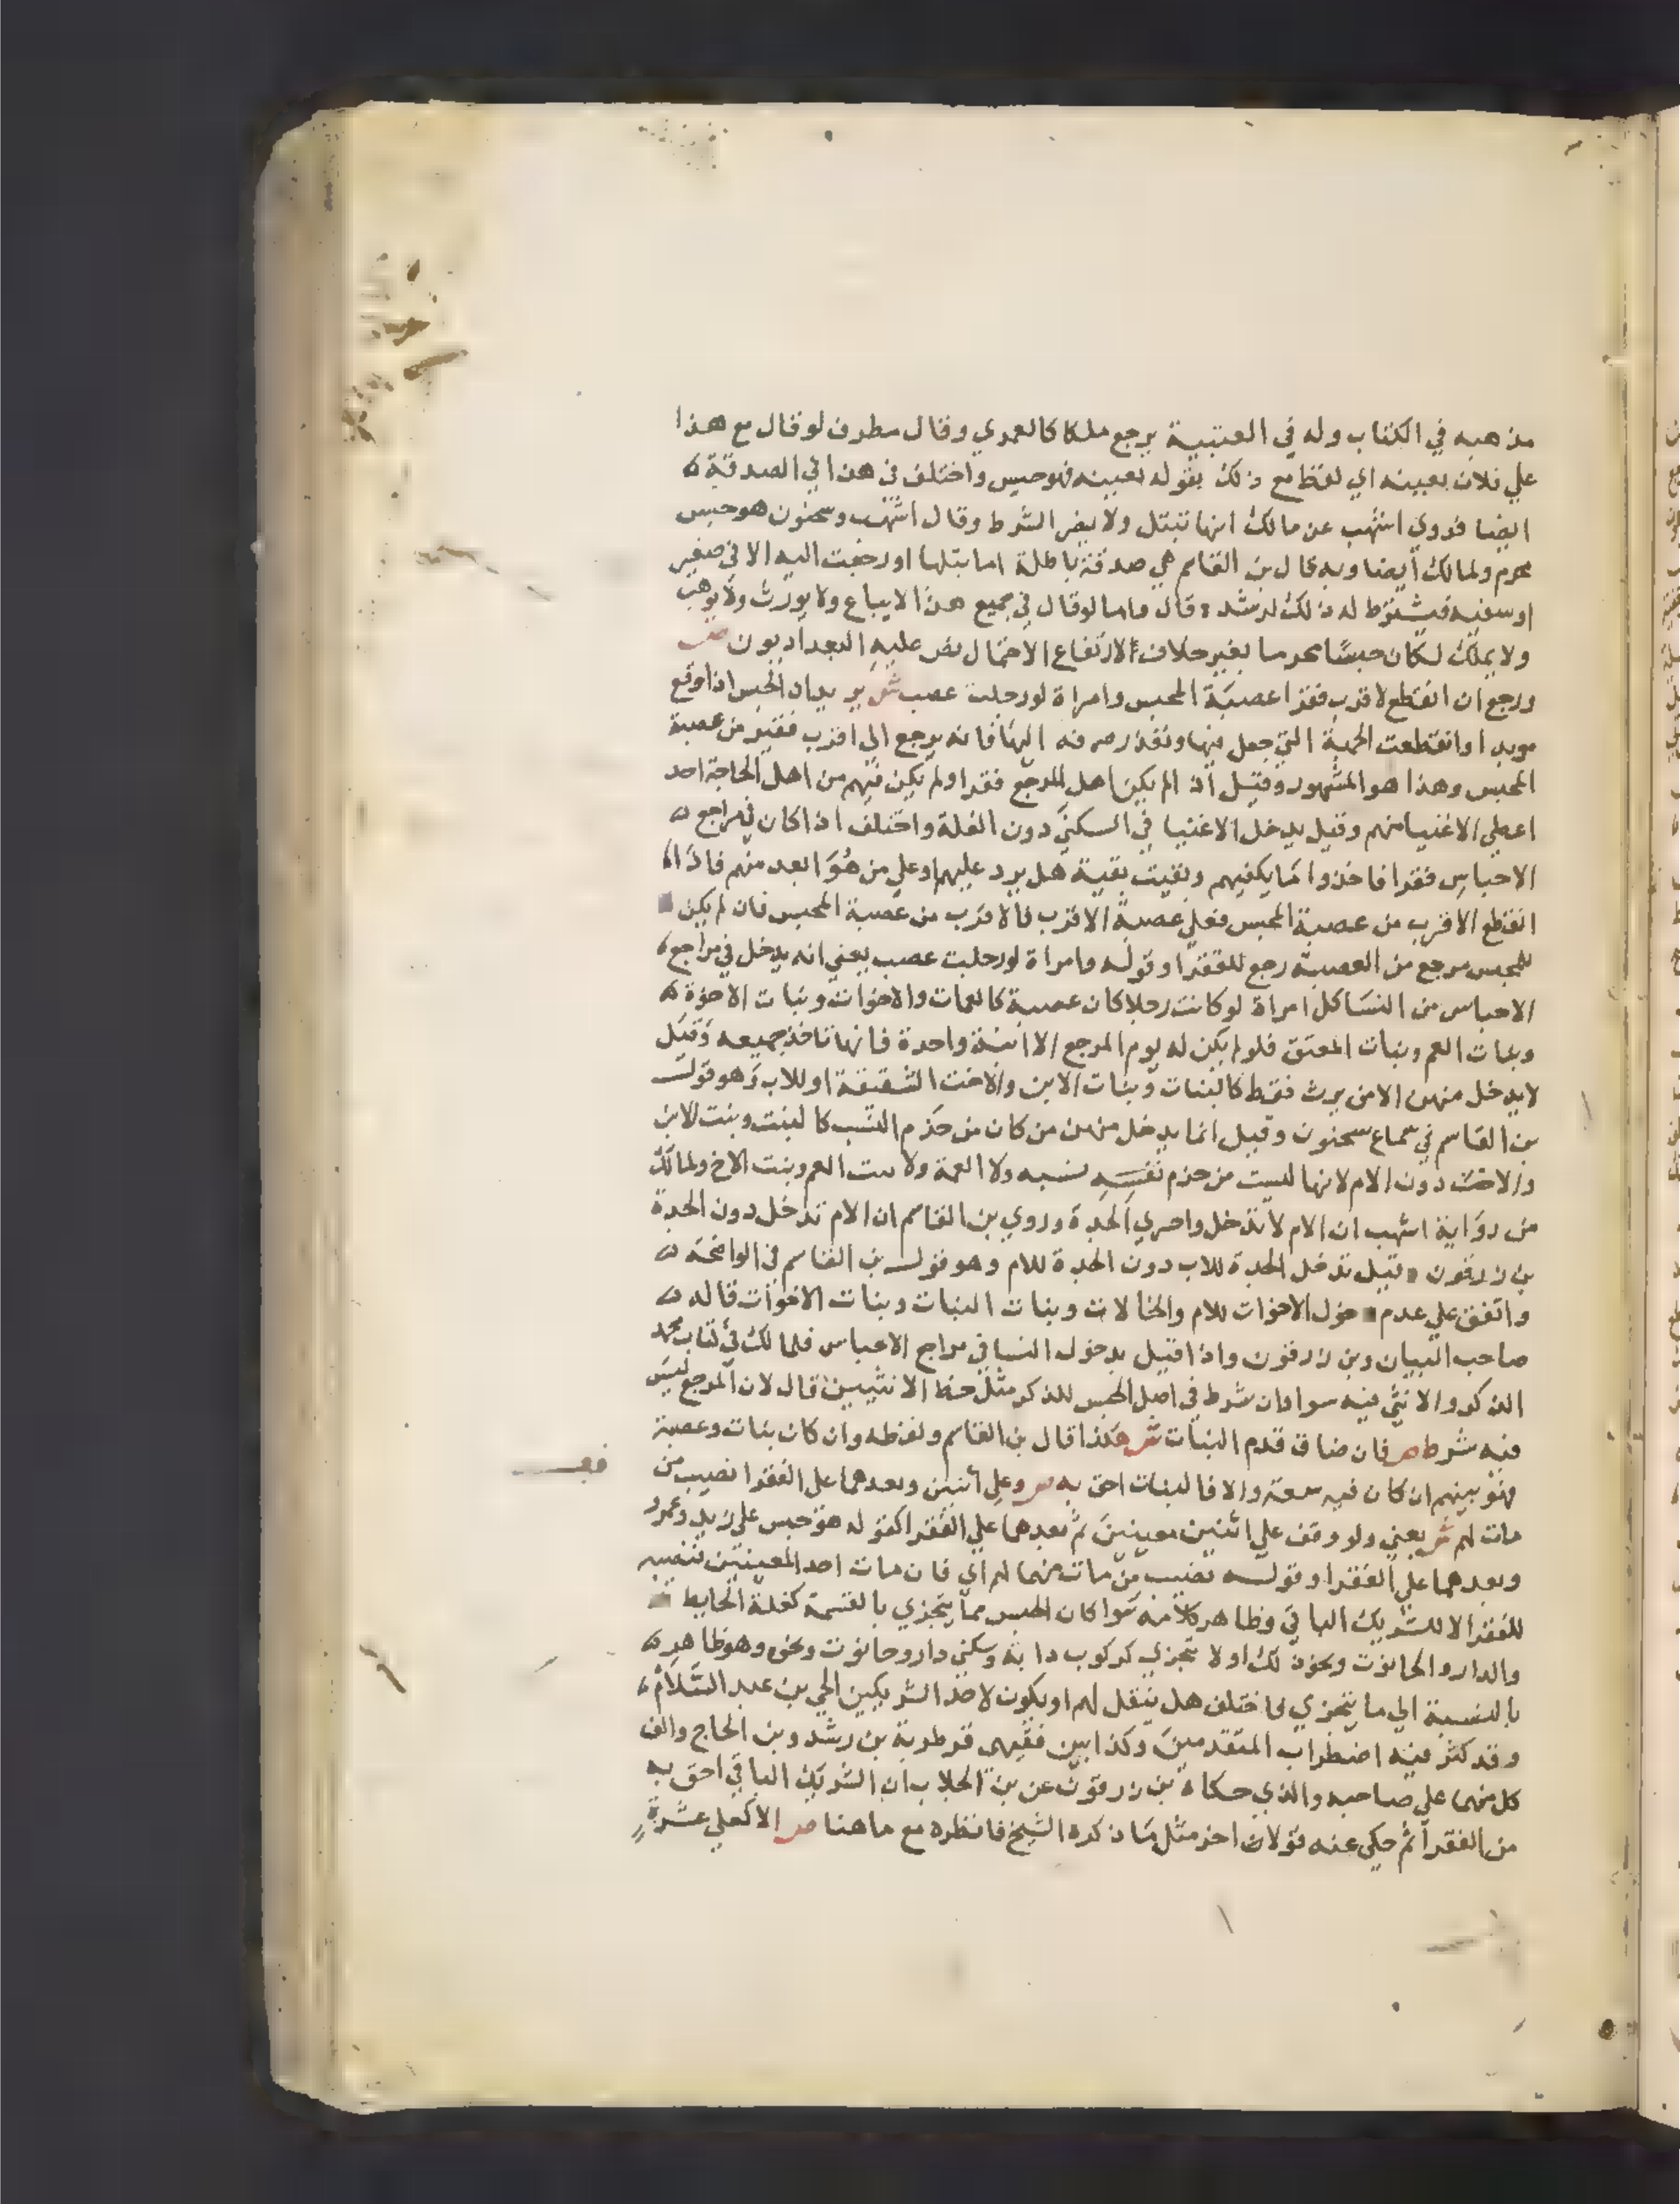 مذهبه في الكتاب وله في العتبية يرجع ملكا كالعمري وقال مطرف لو قال مع هذا
علي فلان بعينه اي لفظ مع ذلك بقوله بعينه فهو حبس واختلف في هذا في الصدقة
ايضا فروي اشهب عن مالك انها تبتل ولا يضر الشرط وقال اشهب وسحنون هو حبس
محرم ولمالك أيضا وبه قال بن القاسم هي صدقة باطلة اما بتلها او رجعت اليه الا في صغير
او سفيه فيشترط له ذلك لرشد وقال واما لو قال في جميع هذا لا يباع ولا يورث ولا يوهب
ولا يملك لكان حبسا محرما بغير خلاف لارتفاع الاحتمال نص عليه البغداديون ص
ورجع ان انقطع لاقرب فقرا عصبة المحبس وامراة لو رجلت عصب ش يريد ان الحبس اذا وقع
موبدا وانقطعت الجهة التي جعل فيها وتعذر صرفه اليها فانه يرجع الي اقرب فقير من عصبة
المحبس وهذا هو المشهور وقيل اذا لم يكن اهل المرجع فقرا ولم يكن فيهم من اهل الحاجة احد
اعطي الاغنيا منهم وقيل يدخل الاغنيا في السكني دون الغلة واختلف اذا كان في مراجع
الاحباس فقرا فاخذوا ما يكفيهم وبقيت بقية هل يرد عليهم او علي من هو ابعد منهم فاذا
انقطع الاقرب من عصبة المحبس فعلي عصبة الاقرب فالاقرب من عصبة المحبس فان لم يكن
للمحبس مرجع من العصبة رجع للفقرا وقوله وامراة لو رجلت عصب يعني انه يدخل في مراجع
الاحباس من النسا كل امراة لو كانت رجلا كان عصبة كالعمات والاخوات وبنات الاخوة
وبنات العم وبنات المعتق فلو لم يكن له يوم المرجع الا ابنة واحدة فانها تاخذ جميعه وقيل
لا يدخل منهن الا من يرث فقط كالبنات وبنات الابن والاخت الشقيقة او للاب وهو قول
بن القاسم في سماع سحنون وقيل انما يدخل منهن من كان من حذم النسب كالبنت وبنت الابن
والاخت دون الام لانها ليست من حذم نفسه نسبه ولا العمة ولا بنت العم وبنت الاخ ولمالك
من رواية اشهب ان الام لا تدخل واحري الجدة وروي بن القاسم ان الام تدخل دون الجدة
بن زرقون وقيل تدخل الجدة للاب دون الجدة للام وهو قول بن القاسم في الواضحة
واتفق علي عدم دخول الاخوات للام والخالات وبنات البنات وبنات الاخوات قاله
صاحب البيان وبن زرقون واذا قيل بدخول النسا في مراجع الاحباس فلمالك في كتاب محمد
الذكر والانثي فيه سوا وان شرط في اصل الحبس للذكر مثل حظ الانثيين قال لان المرجع ليس
فيه شرط ص فان ضاق قدم البنات ش هكذا قال بن القاسم ولفظه وان كان بنات وعصبة
فهو بينهم ان كان فيه سعة والا فالبنات احق به ص وعلي اثنين وبعدهما علي الفقرا نصيب من
مات لهم ش يعني ولو وقف علي اثنين معينين ثم بعدهما علي الفقرا كقوله هو حبس علي زيد وعمرو
وبعدهما علي الفقرا وقوله نصيب من مات منهما لهم اي فان مات احد المعينين فنصيبه
للفقرا لا للشريك الباقي وظاهر كلامه سوا كان الحبس مما يتجزي بالقسمة كغلة الحايط
والدار والحانوت ونحو ذلك او لا يتجزي كركوب دابة وسكني دار وحانوت ونحوه وهو ظاهر
بالنسبة الي ما يتجزي فاختلف هل ينتقل لهم او يكون لاحد الشريكين الحي بن عبد السلام
وقد كثر فيه اضطراب المتقدمين وكذا بين فقيهي قرطبة بن رشد وبن الحاج والف
كل منهما علي صاحبه والذي حكاه بن زرقون عن بن الجلاب ان الشريك الباقي احق به
من الفقرا ثم حكي عنه قولا اخر مثل ما ذكره الشيخ فانظره مع ما هنا ص الا كعلي عشرة